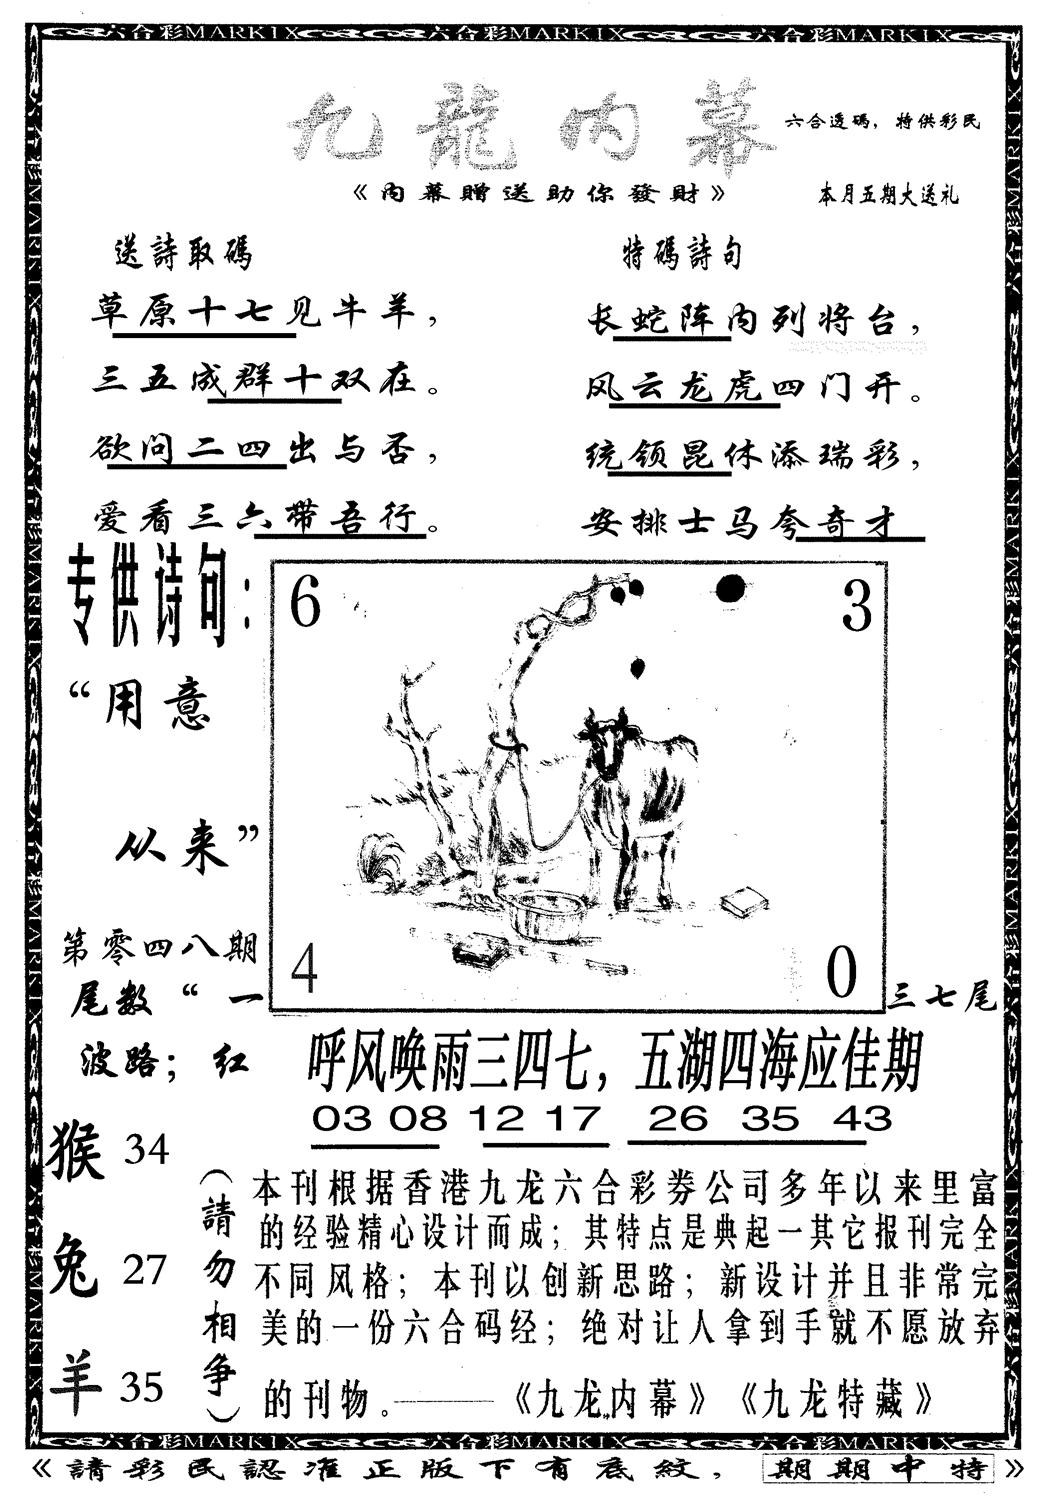 六合彩MARKIX 六合彩MARKIX 六合彩MARKIX
九龍内幕
六合透碼，特供彩民
《内幕贈送助你發財》
本月五期大送礼
送詩取碼
草原十七见牛羊，
三五成群十双在。
欲问二四出与否，
爱看三六带吾行。
特碼詩句
长蛇阵内列将台，
风云龙虎四门开。
统领昆休添瑞彩，
安排士马夸奇才
专供诗句：
“用意
从来”
第零四八期
尾数“一
三七尾
波路；红
6
3
4
0
呼风唤雨三四七，五湖四海应佳期
03 08 12 17 26 35 43
猴 34
兔 27
羊 35
（請勿相争）
本刊根据香港九龙六合彩券公司多年以来里富
的经验精心设计而成；其特点是典起一其它报刊完全
不同风格；本刊以创新思路；新设计并且非常完
美的一份六合码经；绝对让人拿到手就不愿放弃
的刊物。——《九龙内幕》《九龙特藏》
六合彩MARKIX 六合彩MARKIX 六合彩MARKIX
《請彩民認准正版下有底紋，期期中特》